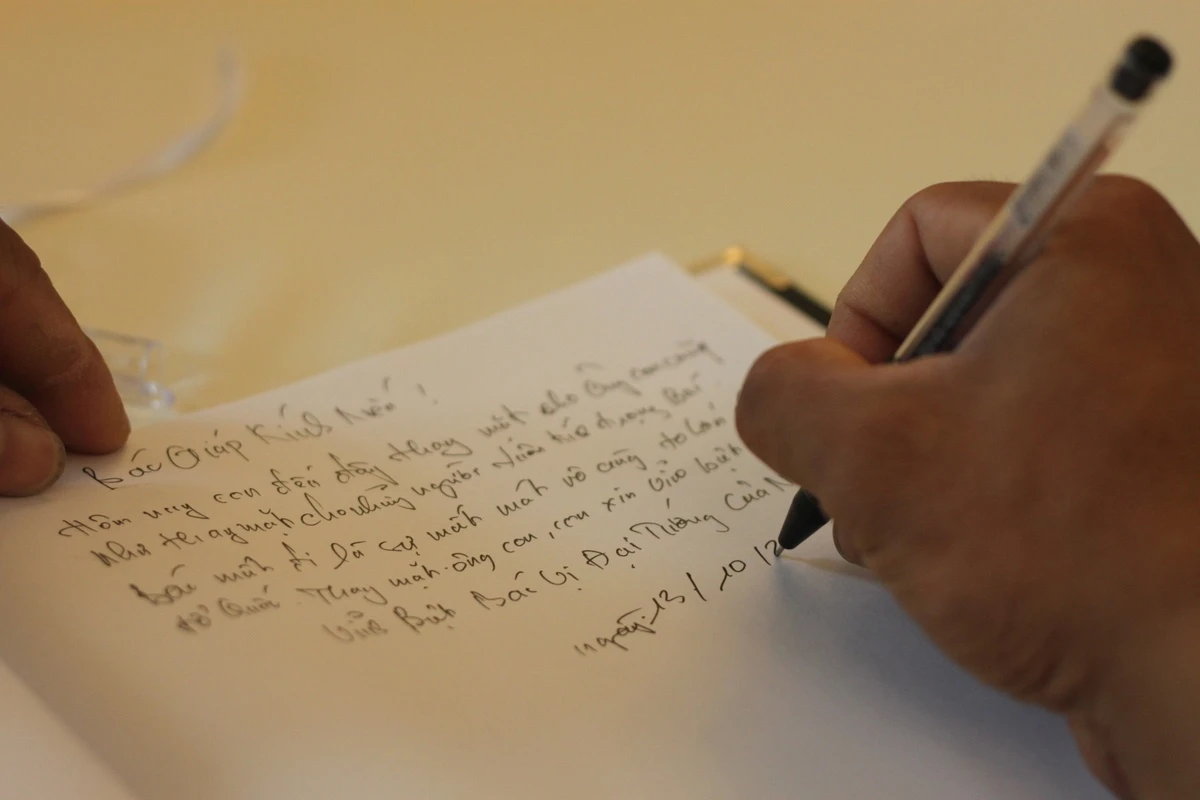 Bác Giáp Kính Mến!
Hôm nay con đến đây thay mặt cho ông con cũng
như thay mặt cho những người tiễn đưa Bác
Bác mất đi là sự mất mát vô cùng to lớn
tổ Quốc. Thay mặt ông con, con xin vĩnh biệt
Vĩnh Biệt Bác Vị Đại Tướng của
ngày: 13/10/2